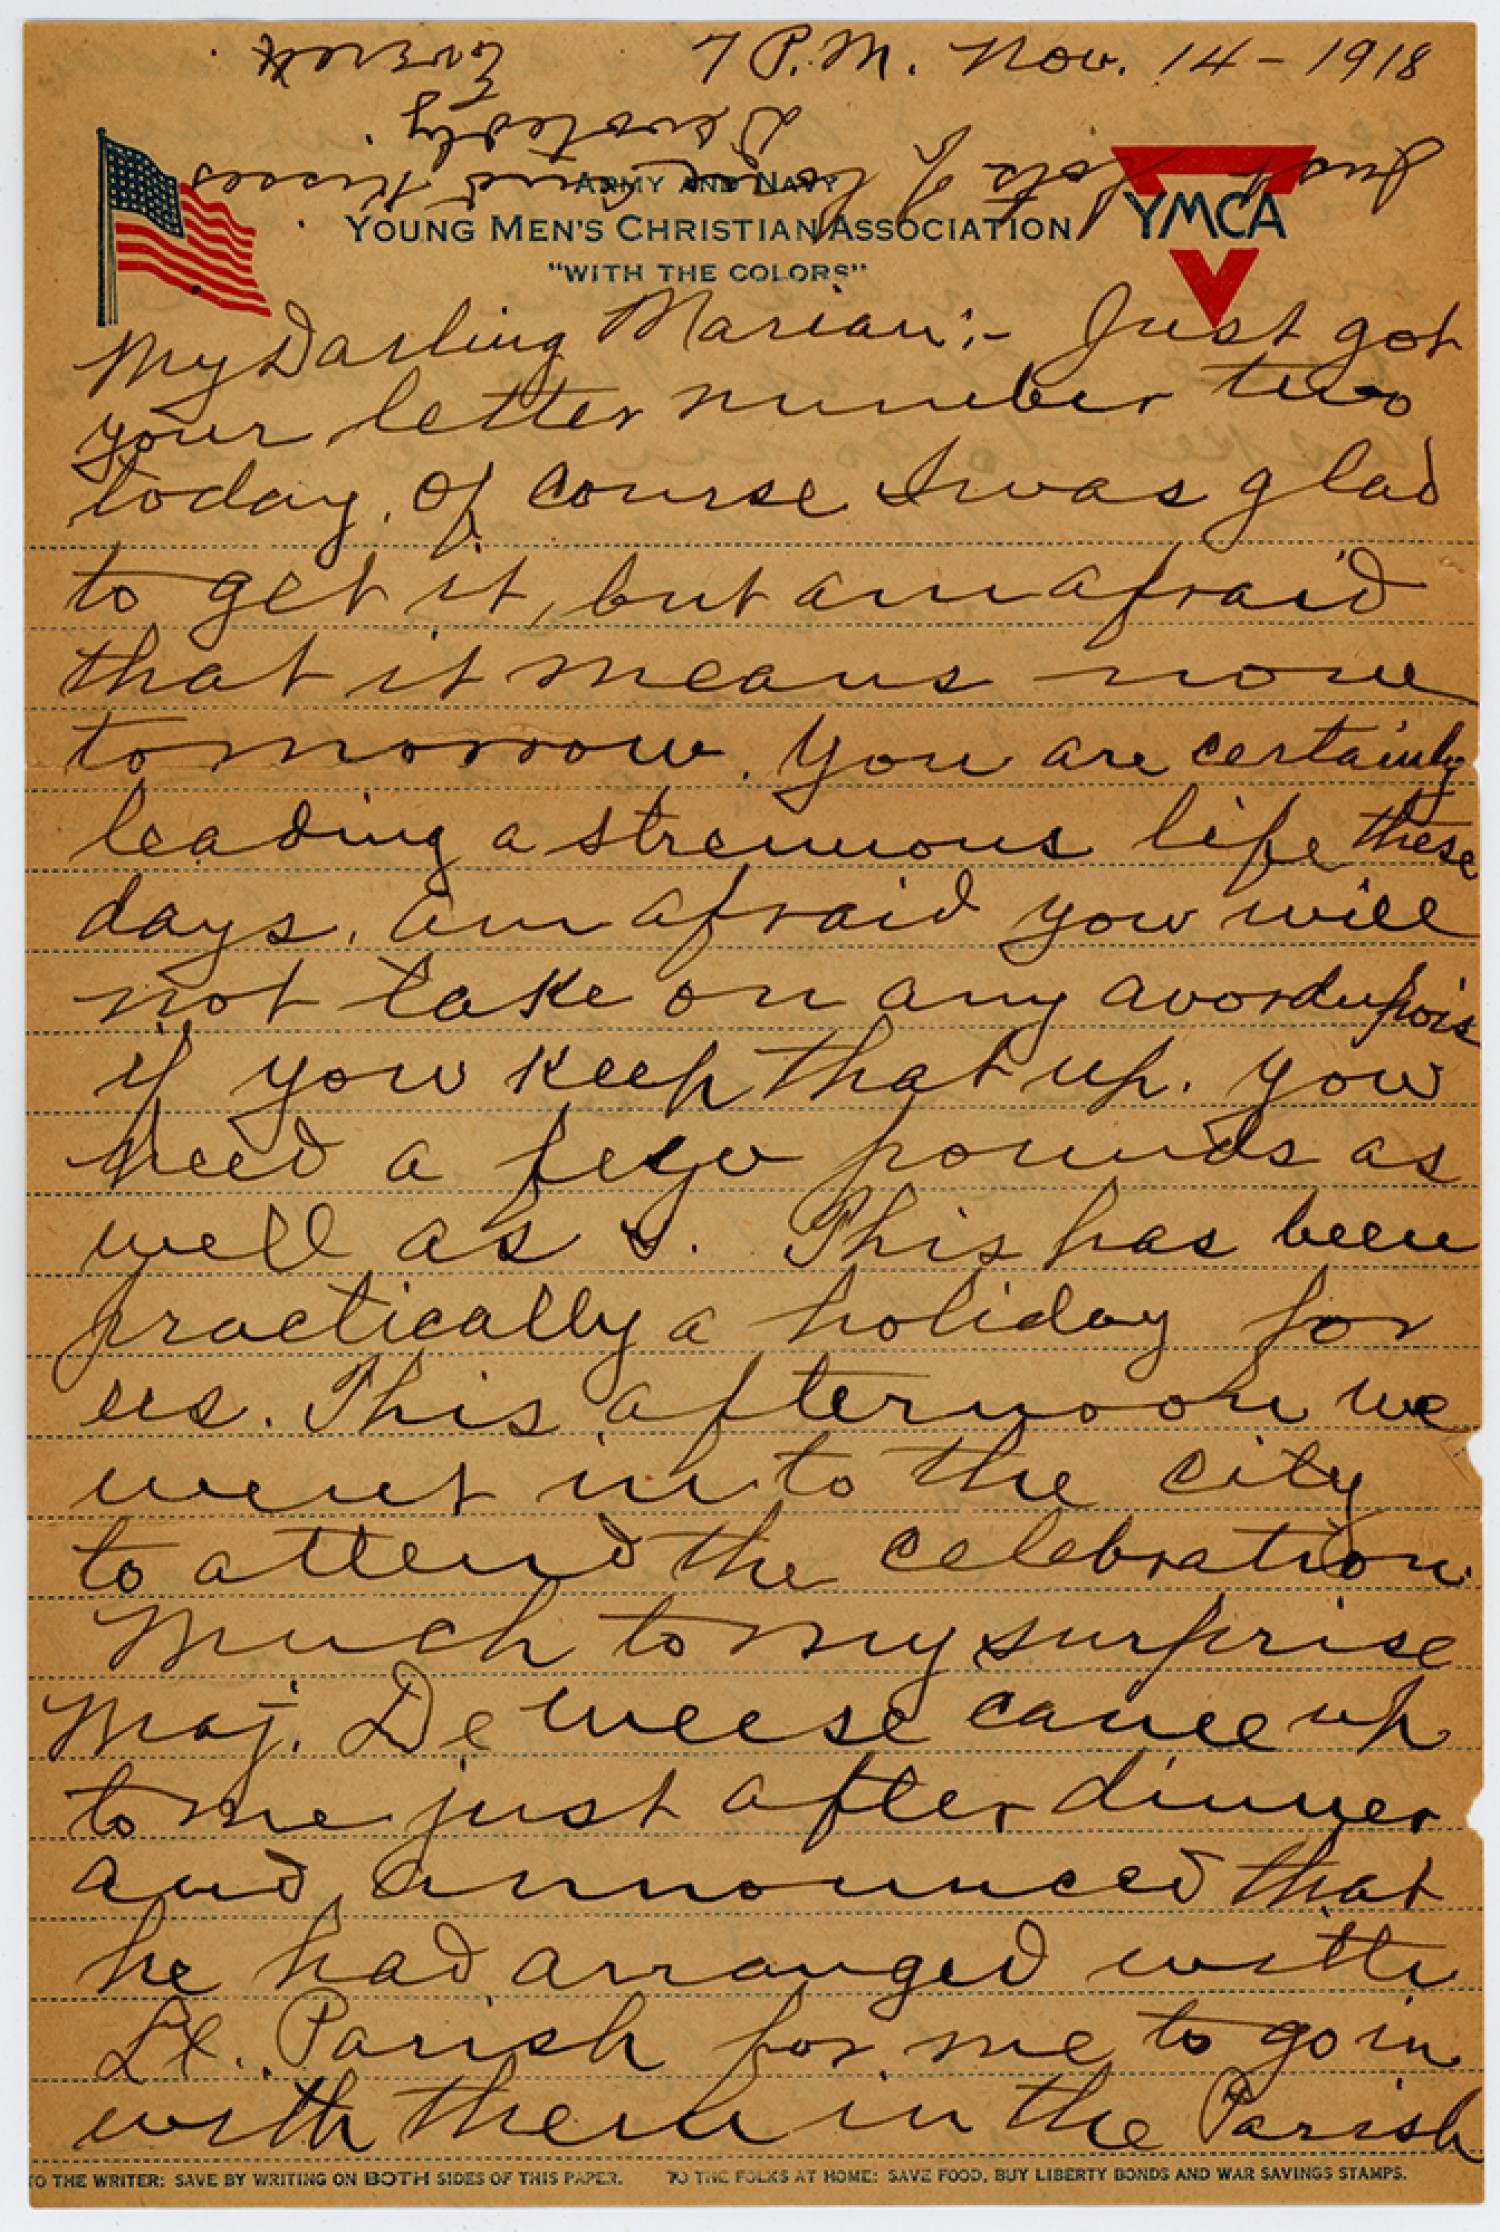 7 P.M. Nov. 14 - 1918
Army and Navy
Young Men's Christian Association
"With the Colors"
YMCA
My Darling Marian:- Just got
your letter number two
today. Of course I was glad
to get it, but am afraid
that it means none
tomorrow. You are certainly
leading a strenuous life these
days. Am afraid you will
not take on any avordupois
if you keep that up. You
need a few pounds as
well as I. This has been
practically a holiday for
us. This afternoon we
went in to the city
to attend the celebration.
Much to my surprise
Maj. De Weese came up
to me just after dinner
and announced that
he had arranged with
Lt. Parish for me to go in
with them in the Parish
TO THE WRITER: SAVE BY WRITING ON BOTH SIDES OF THIS PAPER. TO THE FOLKS AT HOME: SAVE FOOD, BUY LIBERTY BONDS AND WAR SAVINGS STAMPS.
Just lots of love and kisses.
Devotedly,
Everett.